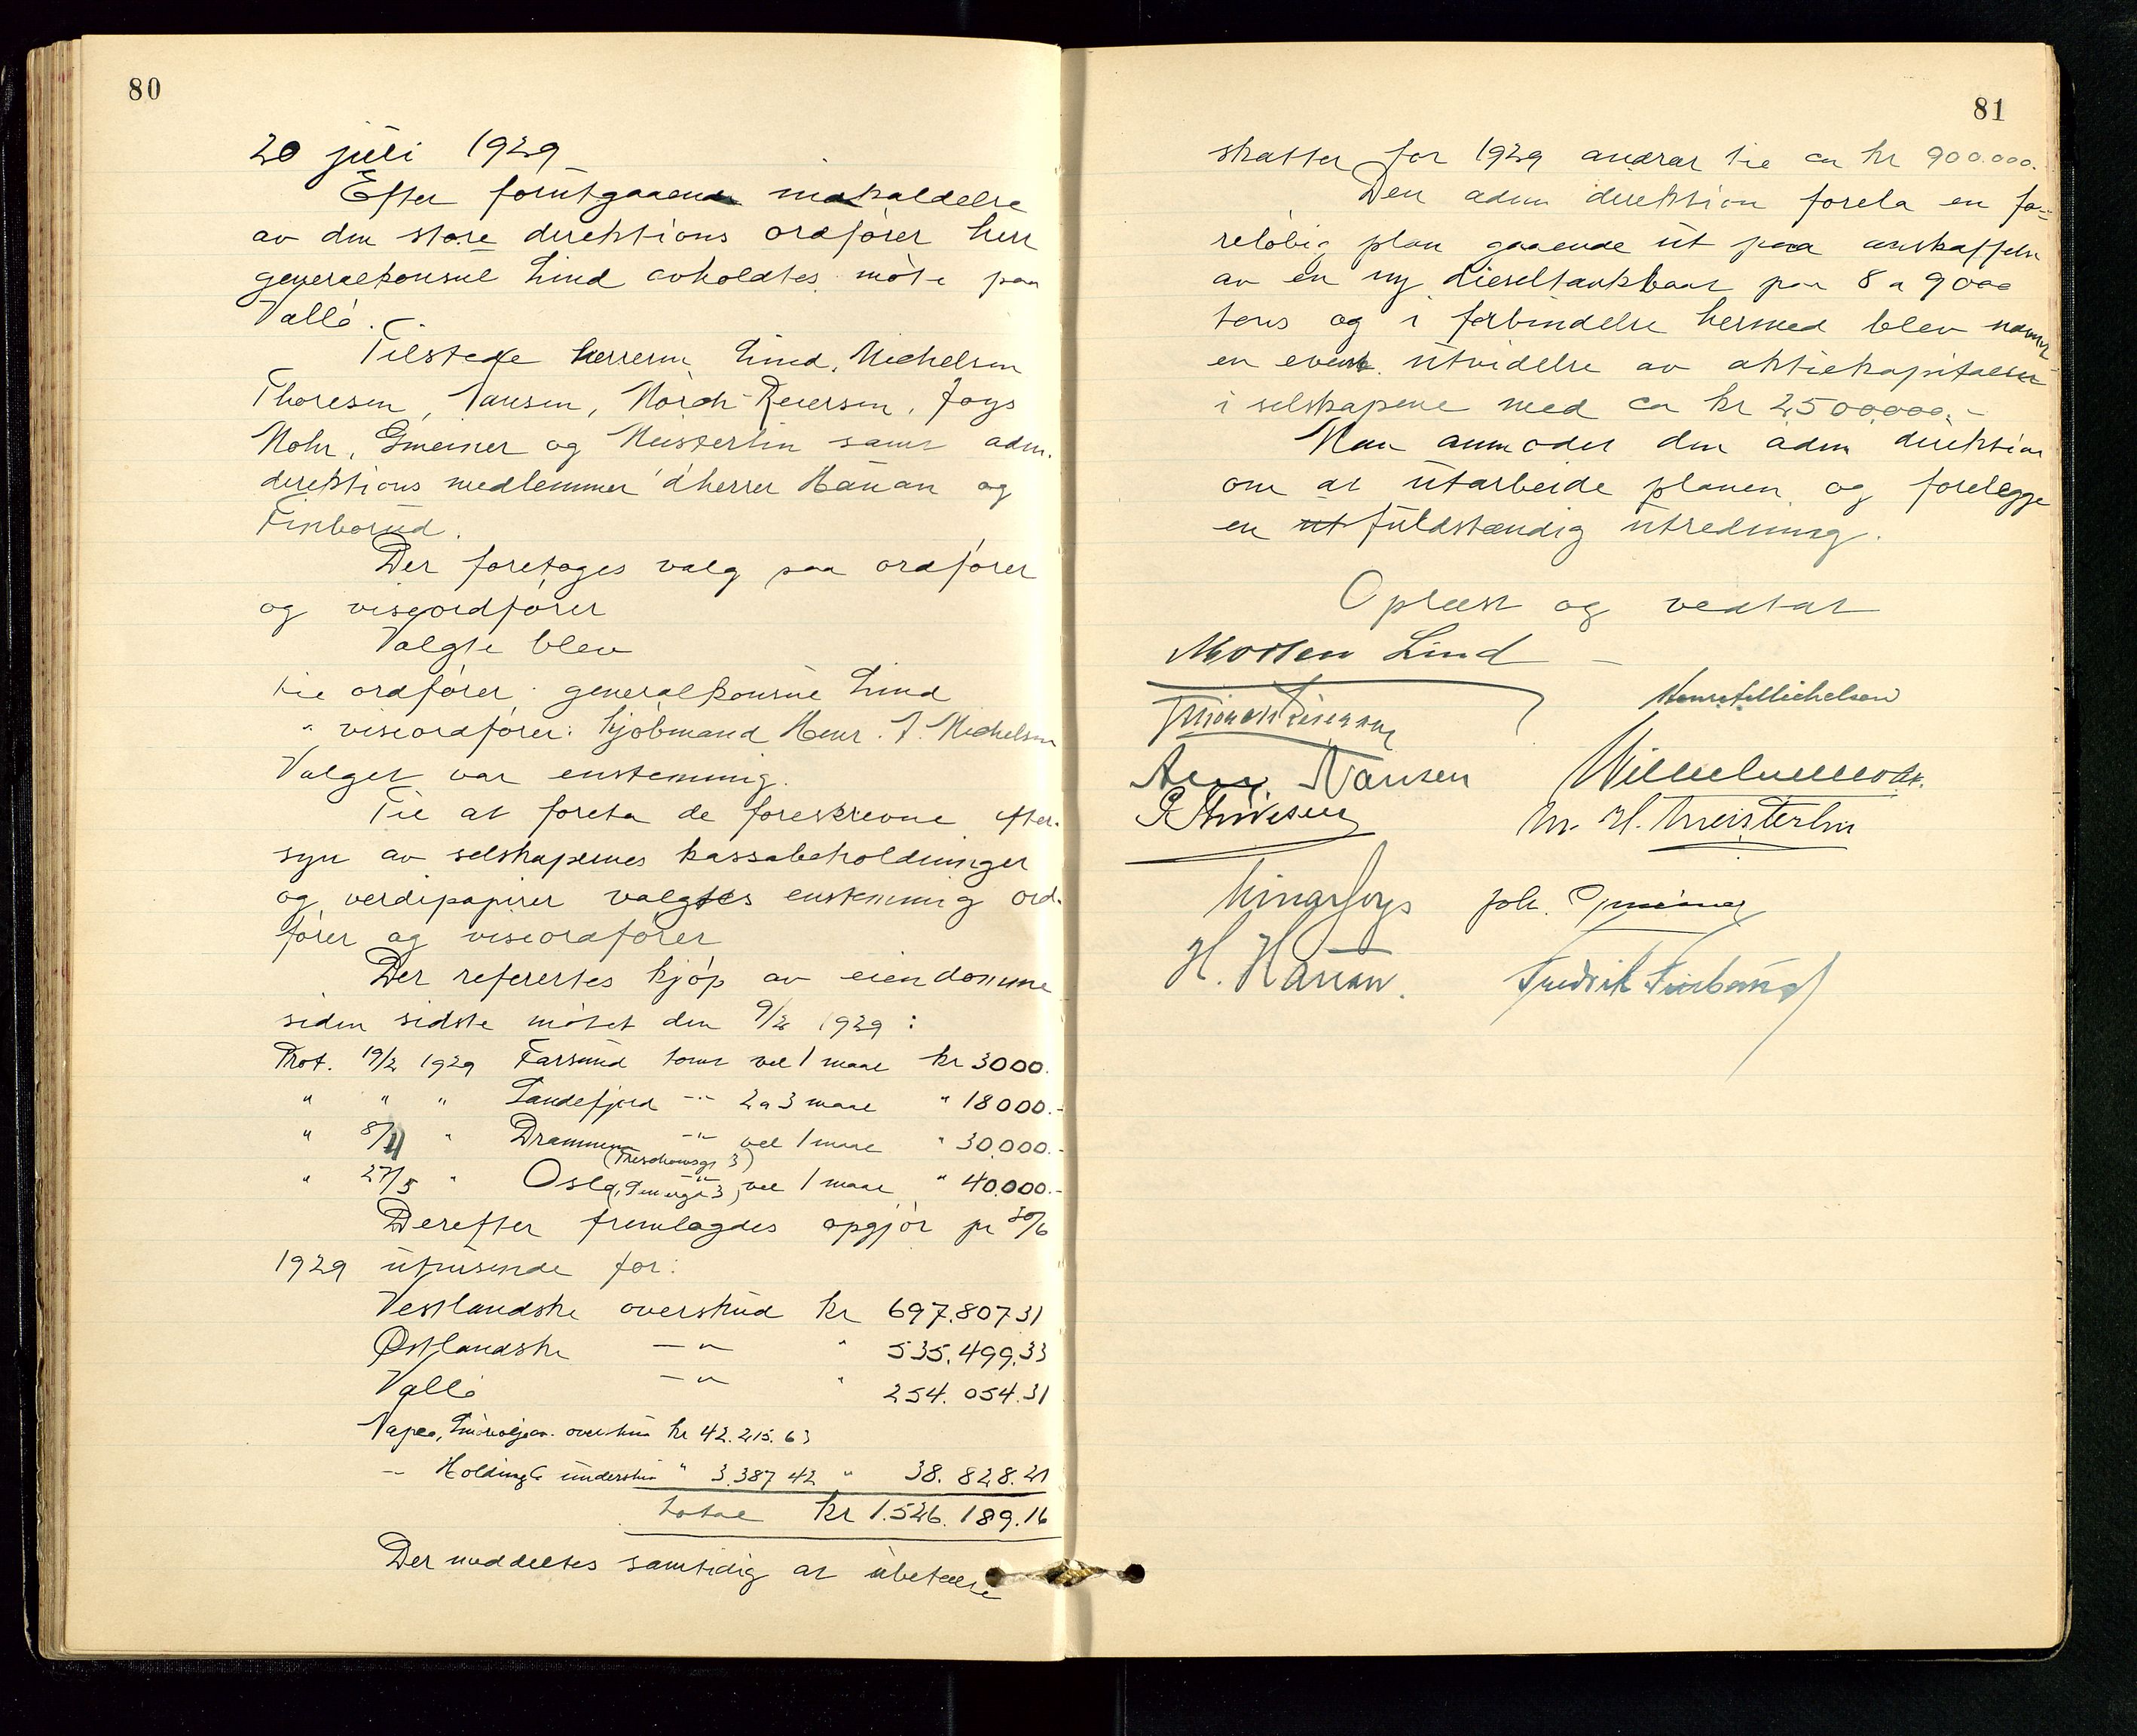 80
20 juli 1929
Efter forutgaaende indkaldelse
av den store direktions ordfører herr
generalkonsul Lind avholdtes møte paa
Vallø.
Tilstede herrerne Lind, Michelsen
Thoresen, Nansen, Mørch-Reiersen, Joys
Mohr, Gmeiner og Meisterlin samt adm.
direktions medlemmer d'herrer Hanan og
Finborud.
Der foretoges valg paa ordfører
og viseordfører
Valgte blev
til ordfører: generalkonsul Lind
" viseordfører: kjøbmand Henr. J. Michelsen
Valget var enstemmig.
Til at foreta de foreskrevne efter-
syn av selskapernes kassabeholdninger
og verdipapirer valgtes enstemmig ord-
fører og viseordfører
Der referertes kjøp av eiendomme
siden sidste møtet den 9/2 1929:
Prot. 19/2 1929 Farsund tomt vel 1 maal kr 3000.
" " " Sandefjord -"- 2 a 3 maal " 18000.-
" 8/4 " Drammen -"- vel 1 maal " 30.000.-
(Treschowsgt 3)
" 27/5 " Oslo, -"- vel 1 maal " 40.000.-
Derefter fremlagdes opgjør pr 30/6
1929 utvisende for:
Vestlandske overskud kr 697.807 31
Østlandske -"- " 535.499.33
Vallø -"- " 254.054.31
Napeo, Smøreoljeav. overskud kr 42.215.63
-"- Holding Co underskud " 3.387 42 " 38.828.21
total kr 1.526.189.16
Der meddeltes samtidig at ubetalte
81
skatter for 1929 andrar til ca kr 900.000.
Den adm direktion forela en fo-
reløbig plan gaaende ut paa anskaffelse
av en ny dieseltankbaat paa 8 a 9000
tons og i forbindelse hermed blev nævnt
en event. utvidelse av aktiekapitalen
i selskapene med ca kr 2500000.-
Man anmodet den adm direktion
om at utarbeide planen og forelægge
en ut fuldstændig utredning.
Oplæst og vedtat
Morten Lind
Henr. J. Michelsen
Mørch Reiersen
Aug. Nansen Wilhelm Mohr.
R Thoresen M. H. Meisterlin
Einar Joys Joh. Gmeiner
H. Hanan. Fredrik Finborud